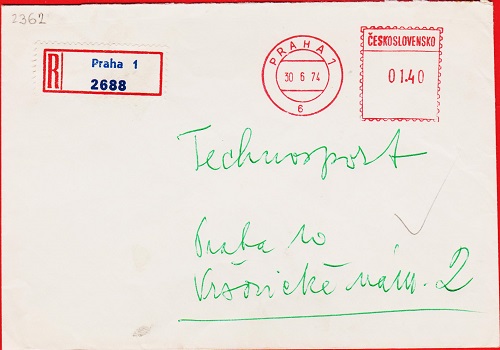 2362
R
Praha 1
2688
PRAHA 1
30 6 74
6
ČESKOSLOVENSKO
01.40
Technosport
Praha 10
Vršovické nám. 2